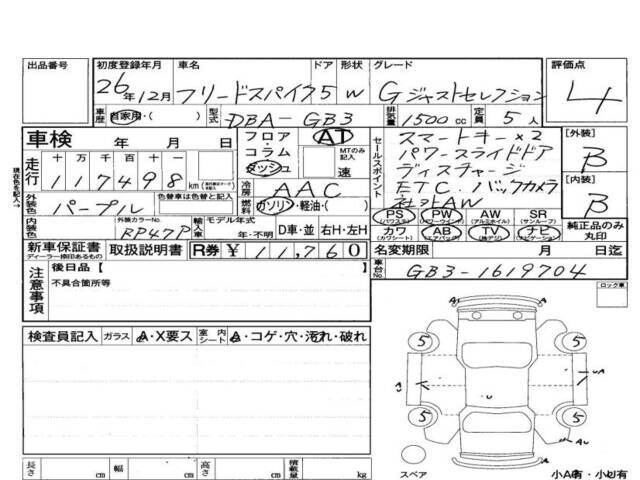 出品番号 初度登録年月 車名 ドア 形状 グレード 評価点
26年12月 フリードスパイク 5 W G ジャストセレクション 4
車歴 自家用・( ) 型式 DBA-GB3 排気量 1500cc 定員 5人
車検 年 月 日 フロア・コラム ダッシュ AT MTのみ記入 速
走行 十万千百十一 117498 km
セールスポイント スマートキー×2
パワースライドドア
ディスチャージ
ETC・バックカメラ
社外AW
[外装] B
[内装] B
冷房 AAC
外装色 パープル 色替車は色替と記入 燃料 ガソリン・軽油・( )
内装色 外装カラーNo. RP47P 輸入車 モデル年式 年・不明 D車・並 右H・左H
PS (パワステ) PW (パワーウインド) AW (アルミホイル) SR (サンルーフ)
カワ (カワシート) AB (エアバッグ) TV (地デジ) ナビ (ナビゲーション)
純正品のみ丸印
新車保証書 ディーラー捺印あるもの 取扱説明書 R券 ¥11,760
名変期限 月 日迄
車台No. GB3-1619704
注意事項 後日品【 】
不具合箇所等
ロック車
検査員記入 ガラス A・X要ス 室内シート A・コゲ・穴・汚れ・破れ
5 5
A UA
5 5
AU
スペア
小A有・小U有
長さ cm 幅 cm 高さ cm 積載量 kg
現在色を記入